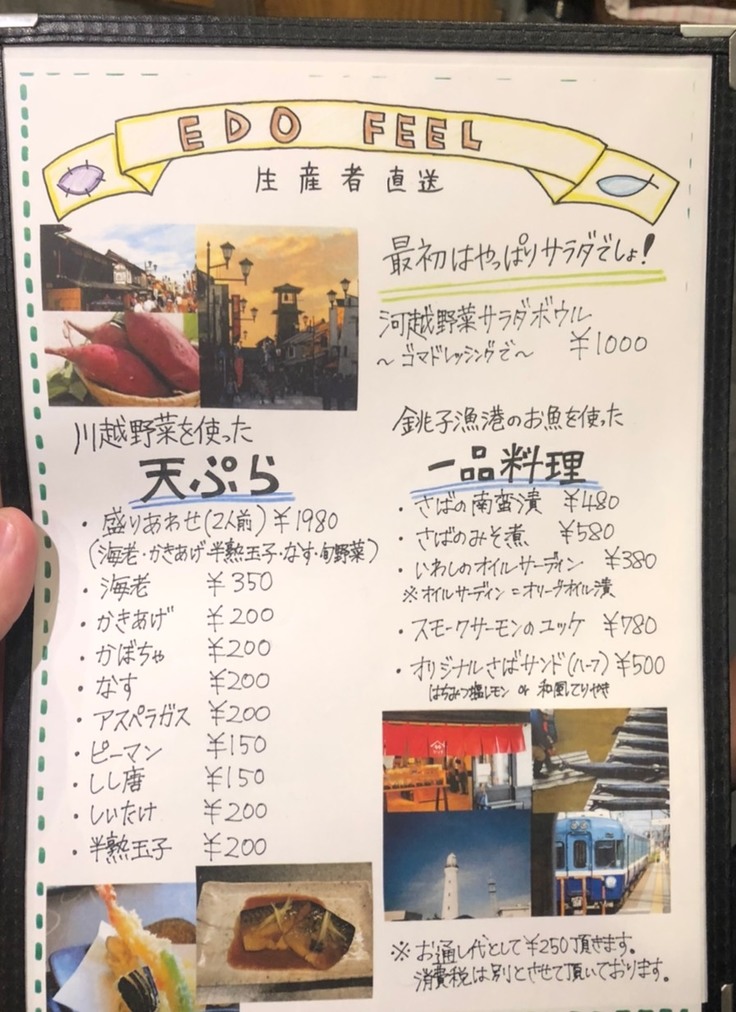 EDO FEEL
生産者直送
最初はやっぱりサラダでしょ!
河越野菜サラダボウル
～ゴマドレッシングで～ ¥1000
川越野菜を使った
天ぷら
・盛りあわせ(2人前) ¥1980
(海老・かきあげ・半熟玉子・なす・旬野菜)
・海老 ¥350
・かきあげ ¥200
・かぼちゃ ¥200
・なす ¥200
・アスペラガス ¥200
・ピーマン ¥150
・しし唐 ¥150
・しいたけ ¥200
・半熟玉子 ¥200
銚子漁港のお魚を使った
一品料理
・さばの南蛮漬 ¥480
・さばのみそ煮 ¥580
・いわしのオイルサーディン ¥380
※オイルサーディン=オリーブオイル漬
・スモークサーモンのユッケ ¥780
・オリジナルさばサンド(ハーフ) ¥500
はちみつ塩レモン or 和風てりやき
※お通し代として¥250頂きます。
消費税は別とさせて頂いております。